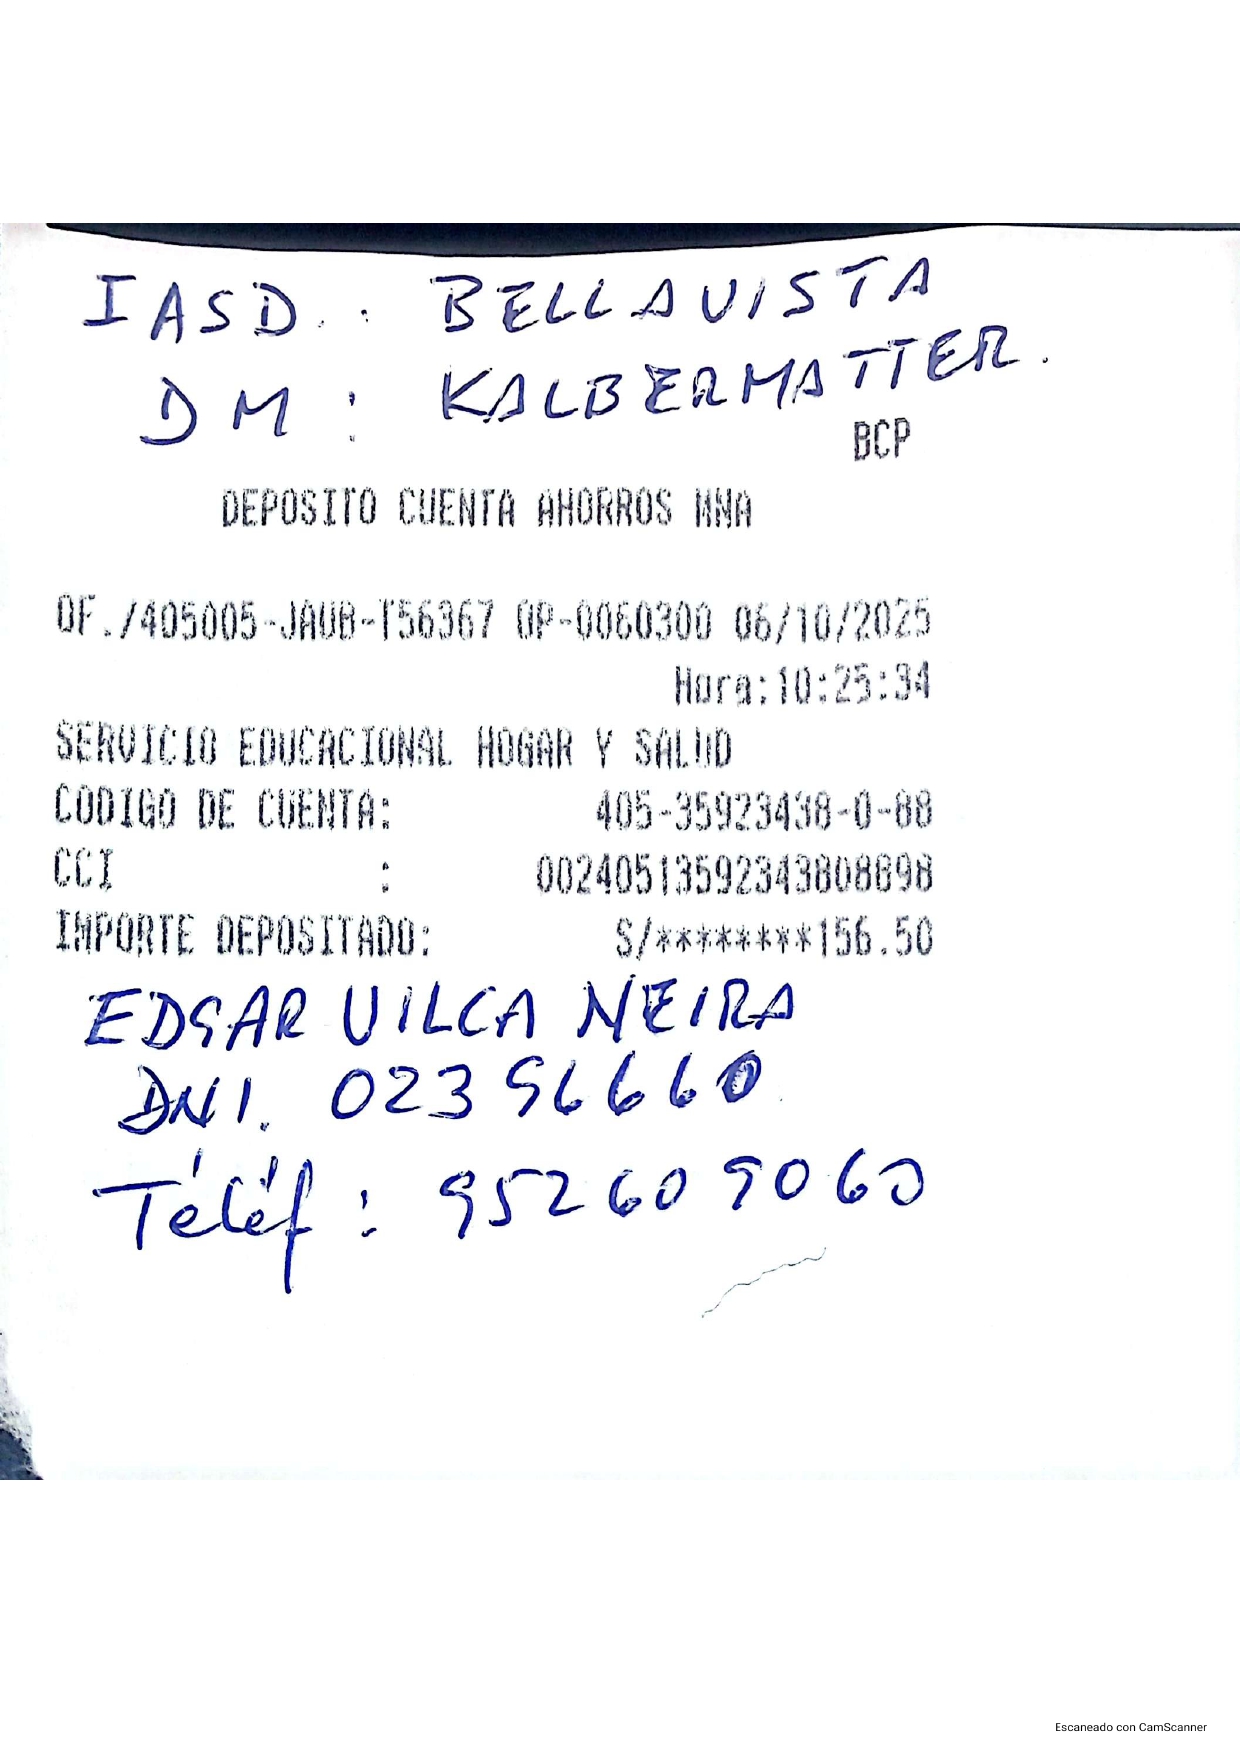 IASD. : BELLAVISTA
DM : KALBERMATTER.
BCP
DEPOSITO CUENTA AHORROS MNA
OF./405005-JAUB-T56367 OP-0060300 06/10/2025
Hora:10:25:34
SERVICIO EDUCACIONAL HOGAR Y SALUD
CODIGO DE CUENTA: 405-35923438-0-88
CCI : 00240513592343808898
IMPORTE DEPOSITADO: S/********156.50
EDGAR VILCA NEIRA
DNI. 02396660
Téléf : 952609060
Escaneado con CamScanner